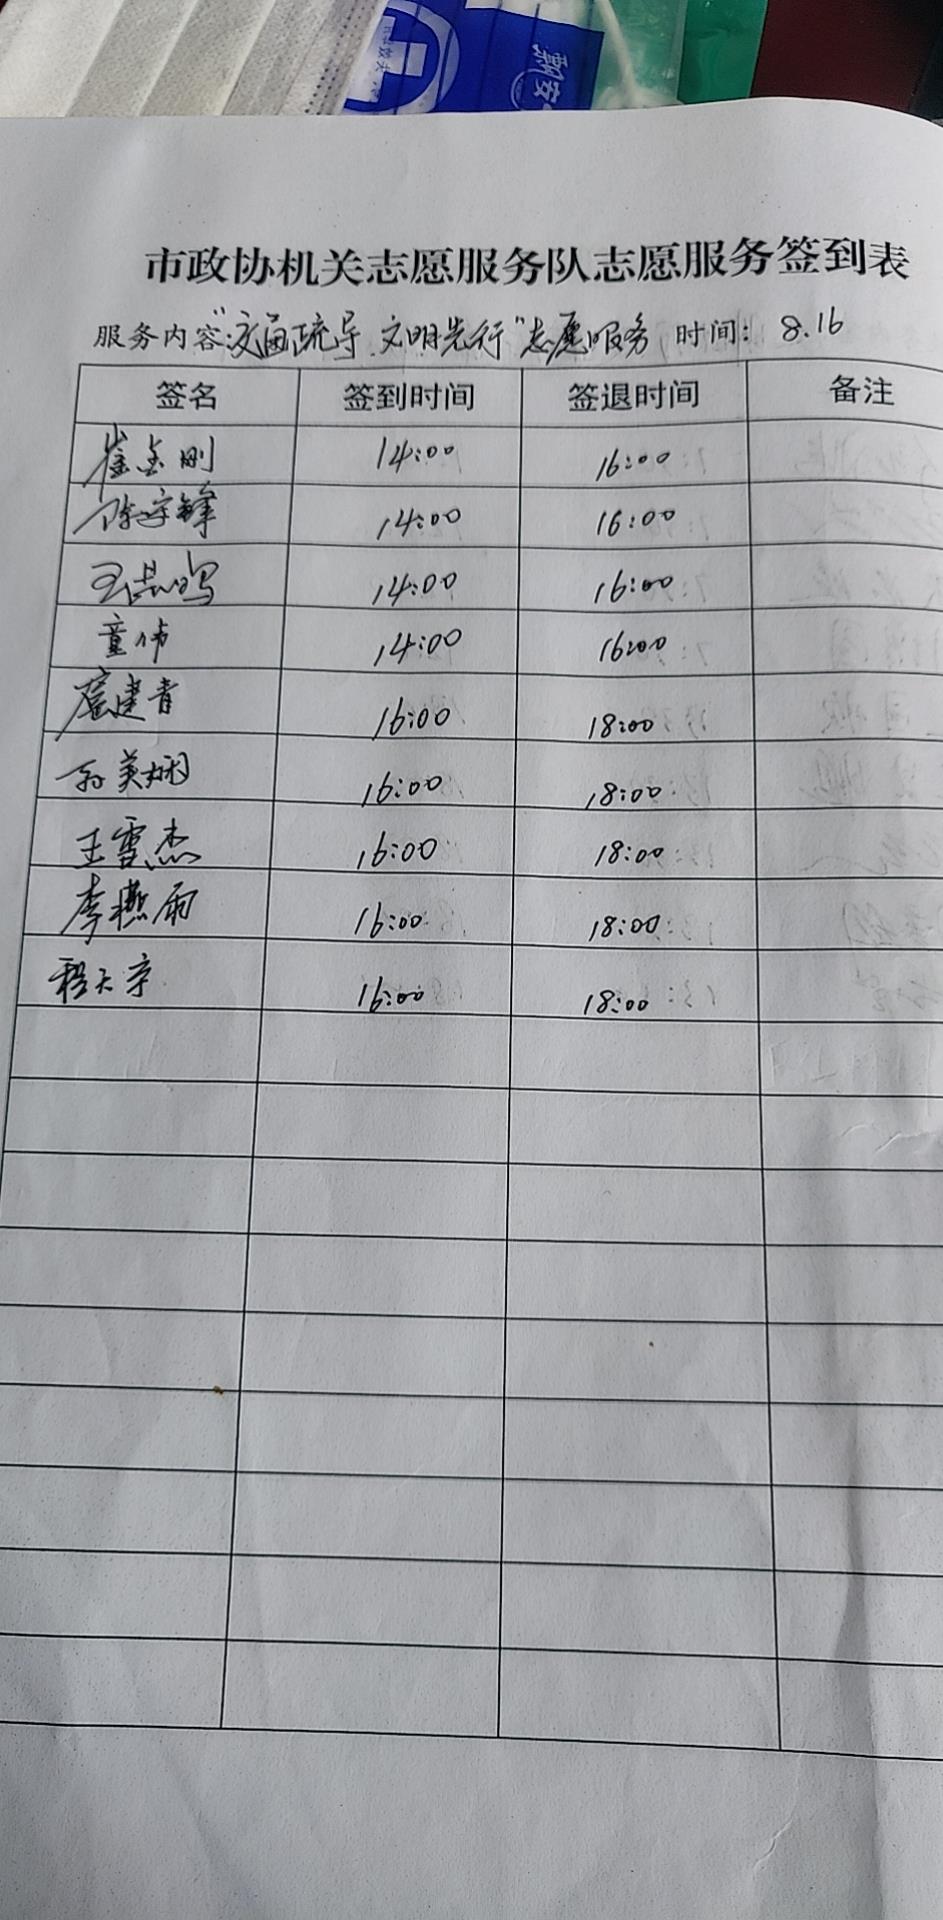 飘安
市政协机关志愿服务队志愿服务签到表
服务内容:"交通疏导 文明先行"志愿服务 时间: 8.16
签名 签到时间 签退时间 备注
崔金刚 14:00 16:00
陈宇锋 14:00 16:00
14:00 16:00
童伟 14:00 16:00
建青 16:00 18:00
孙美娴 16:00 18:00
王雪杰 16:00 18:00
李燕雨 16:00 18:00
程天宇 16:00 18:00